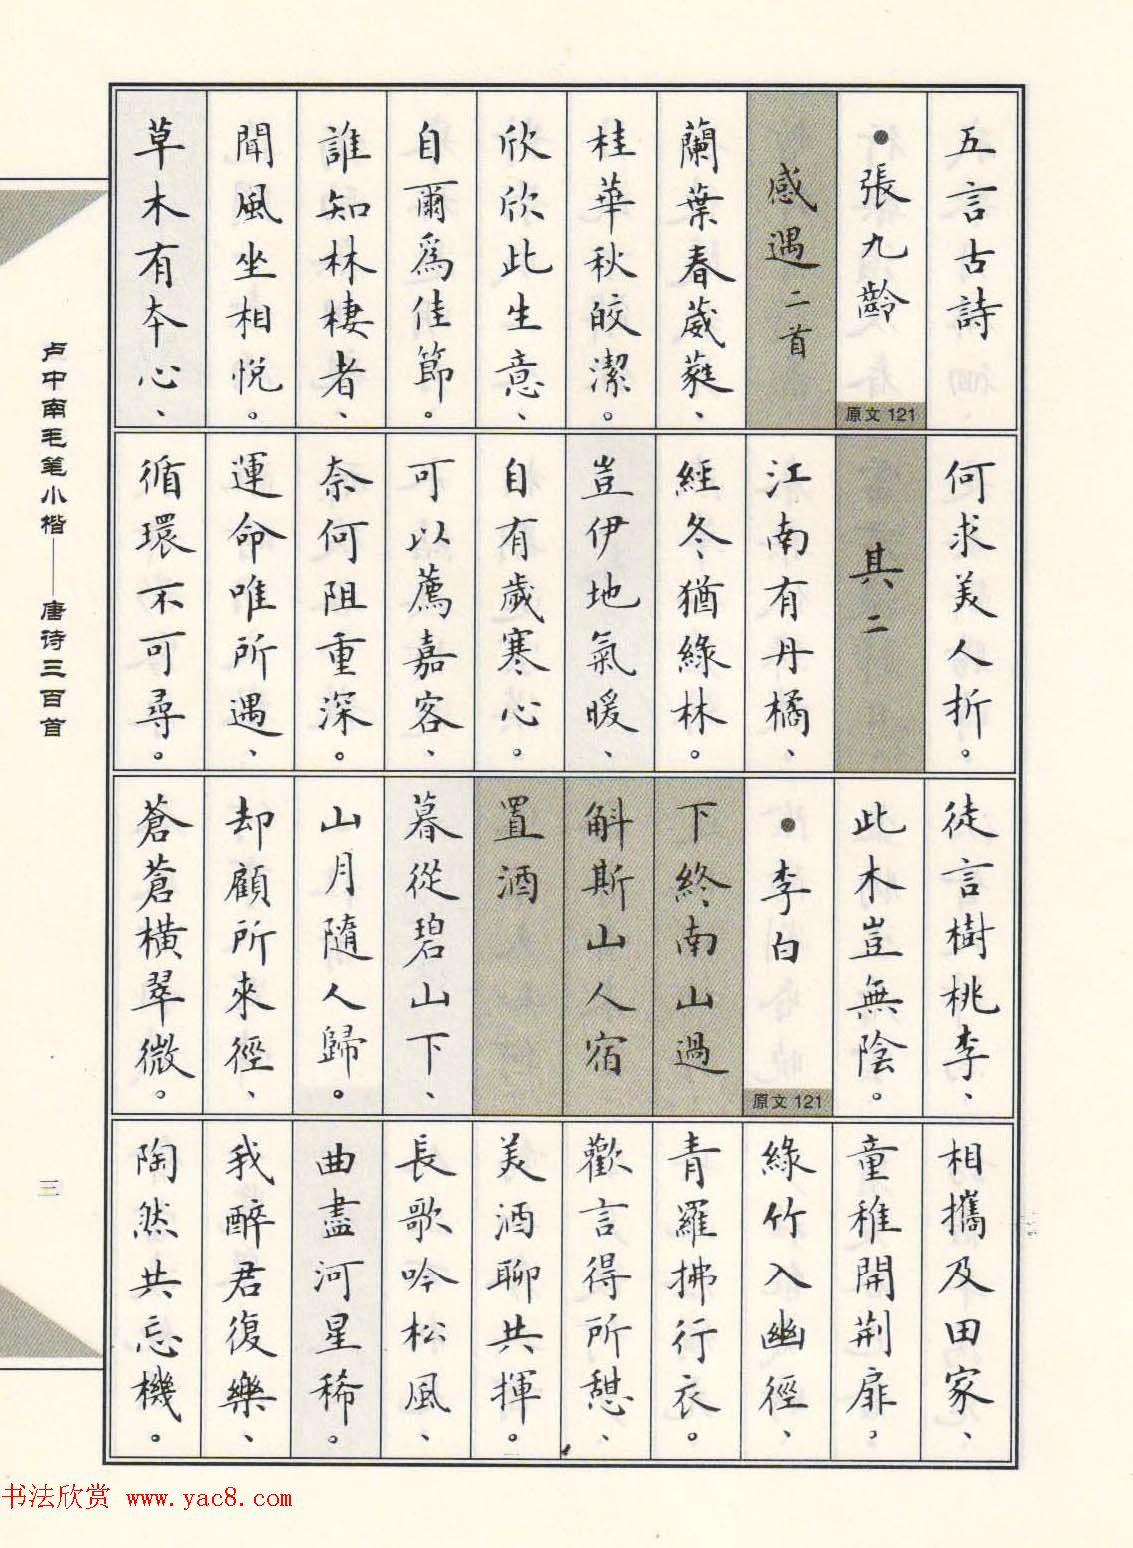 五言古詩
●張九齡
原文 121
感遇二首
蘭葉春葳蕤、
桂華秋皎潔。
欣欣此生意、
自爾爲佳節。
誰知林棲者、
聞風坐相悅。
草木有本心、
何求美人折。
其二
江南有丹橘、
經冬猶綠林。
豈伊地氣暖、
自有歲寒心。
可以薦嘉客、
奈何阻重深。
運命唯所遇、
循環不可尋。
徒言樹桃李、
此木豈無陰。
●李白
原文 121
下終南山過
斛斯山人宿
置酒
暮從碧山下、
山月隨人歸。
却顧所來徑、
蒼蒼橫翠微。
相攜及田家、
童稚開荆扉,
綠竹入幽徑、
青羅拂行衣。
歡言得所憩、
美酒聊共揮。
長歌吟松風、
曲盡河星稀。
我醉君復樂、
陶然共忘機。
卢中南毛笔小楷——唐诗三百首
三
书法欣赏 www.yac8.com